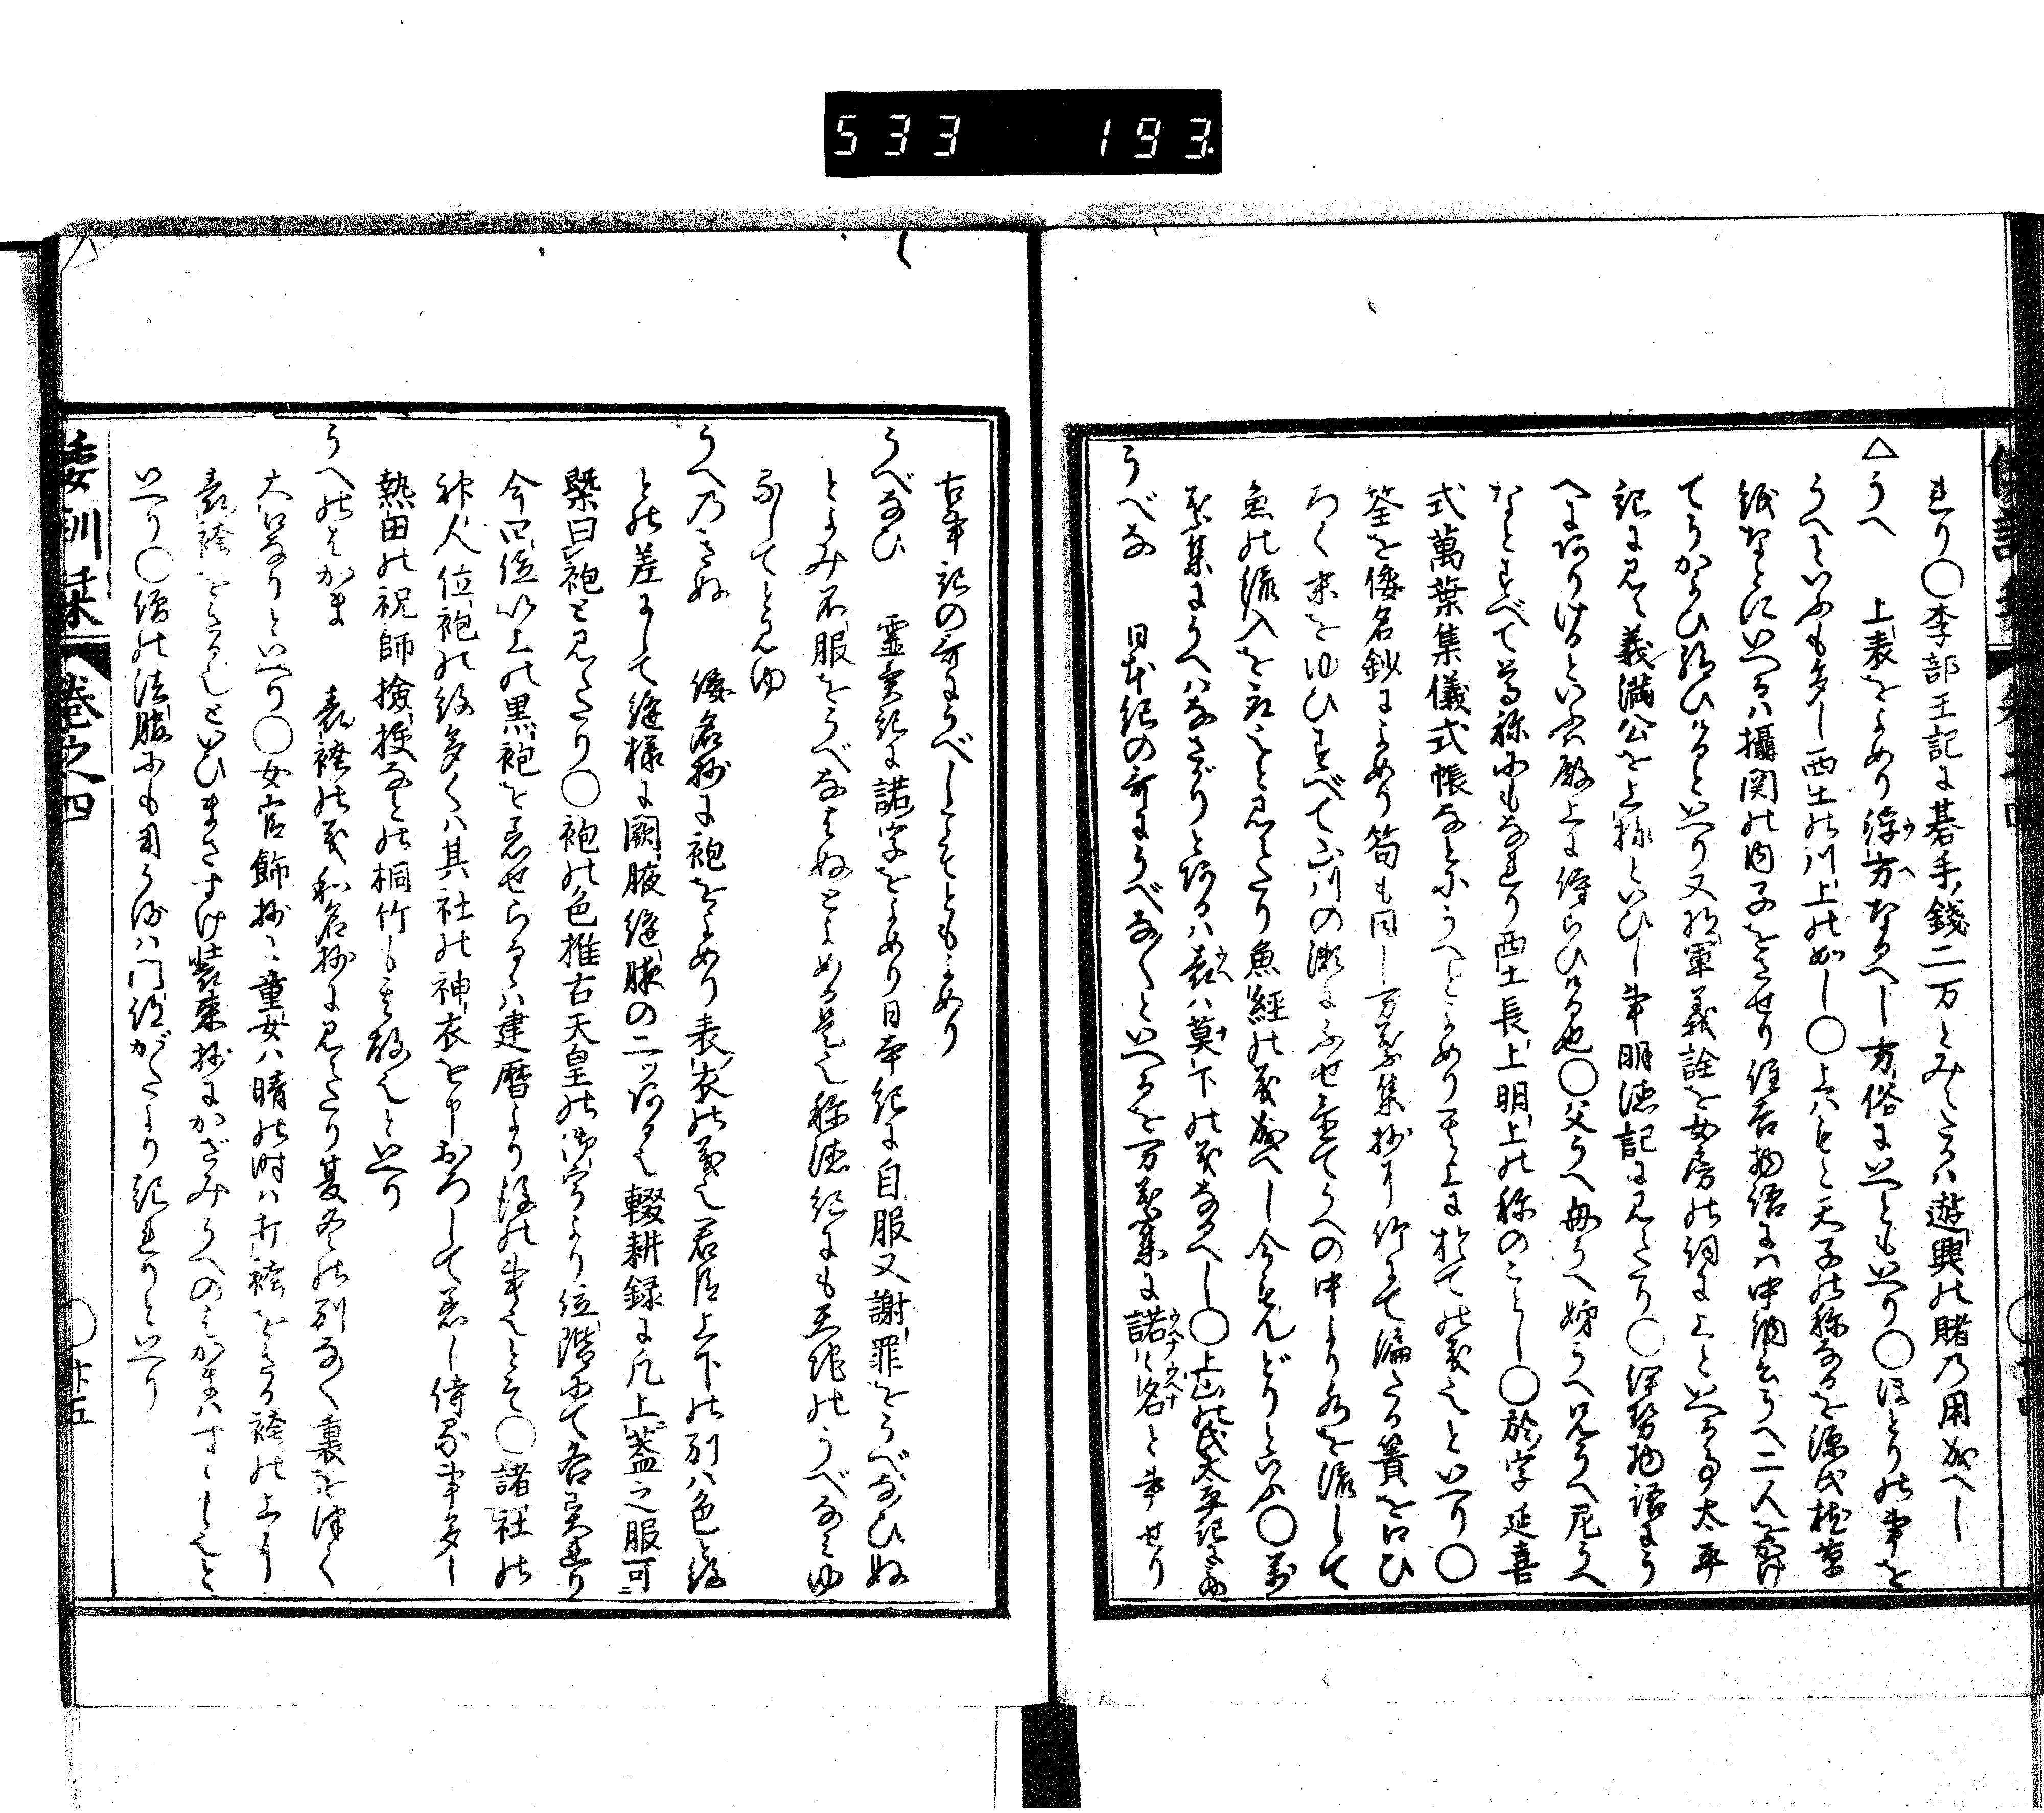 533 193
れり○李部王記に碁手錢二万とみえたるは遊興の賭乃用成へし
△うへ　上表をよめり浮方なるへし方俗にいへとも
うへといふも多し西土の川上の如し○上はもと天子の称なるを源氏枕草
紙なとにいへるは攝関の内子をさせり住吉物語には中納言うへ二人をかけ
てうかよひ給ひけるといへり又将軍義詮を女房の詞に上といへる事太平
記に見え義満公を上様といひし事明徳記に見えたり○伊勢物語にう
へにありけるといふ殿上に侍らひける也○父うへ母うへ姉うへ兄うへ尼うへ
なとすべて尊称にもなれり西土長上明上の称のことし○於字延喜
式萬葉集儀式帳なとにうへとよめり其上に於ての義也といへり○
筌を倭名鈔によめり笱も同し万葉集抄に竹にて編たる簀を口ひ
ろく末をゆひすべて山川の瀬にふせ置てうへの中より水を流して
魚の流入を取をと見えたり魚經の義成へし今もんどりといふ○万
葉集にうへはなさがりとあるは表は莫下の義なるへし○上山の氏太平記に
うべな　日本紀の哥にうべな〳〵といへるを万葉集に諾〻名と書せり
古事記の哥にうべしこそともよめり
うべなひ　霊異記に諾字をよめり日本紀に自服又謝罪をうべなひぬ
とよみ不服をうべなはぬとよめる是也称徳紀にも
なしてと見ゆ
うへのきぬ　倭名抄に袍をよめり表衣の義也君臣上下の別は色と紋
との差にして縫様に闕腋縫腋の二ツある也輟耕録に凡上蓋之服可
槩曰袍と見えたり○袍の色推古天皇の御宇より位階にて各異れり
今四位以上の黒袍を着せらるゝは建暦より後の事也とそ○諸社の
神人位袍の紋多くは其社の神衣を申おろして着し侍る事多し
熱田の祝師撿挍なとの桐竹も其故也といへり
うへのはかま　表袴の義和名抄に見えたり夏冬の別なく裏を津く
大口なりといへり○女官飾抄に童女は晴の時は打袴をきる袴の上に
表袴をきるといひまさすけ装束抄にかざみうへのはかまはすゝしと
いへり○僧の法服にも用うるは門徒がたより起れりといへり
倭訓栞 巻之四 ○廿五